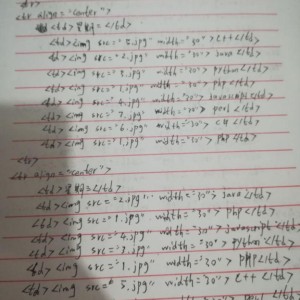 <tr>
<tr align="center">
<td>星期一</td>
<td><img src="3.jpg" width="30">C++</td>
<td><img src="2.jpg" width="30">Java</td>
<td><img src="3.jpg" width="30">Python</td>
<td><img src="1.jpg" width="30">PHP</td>
<td><img src="4.jpg" width="30">Javascript</td>
<td><img src="7.jpg" width="30">perl</td>
<td><img src="6.jpg" width="30">C#</td>
<td><img src="1.jpg" width="30">PHP</td>
<tr>
<tr align="center">
<td>星期二</td>
<td><img src="2.jpg" width="30">Java</td>
<td><img src="1.jpg" width="30">PHP</td>
<td><img src="4.jpg" width="30">Javascript</td>
<td><img src="3.jpg" width="30">Python</td>
<td><img src="1.jpg" width="30">PHP</td>
<td><img src="5.jpg" width="30">C++</td>